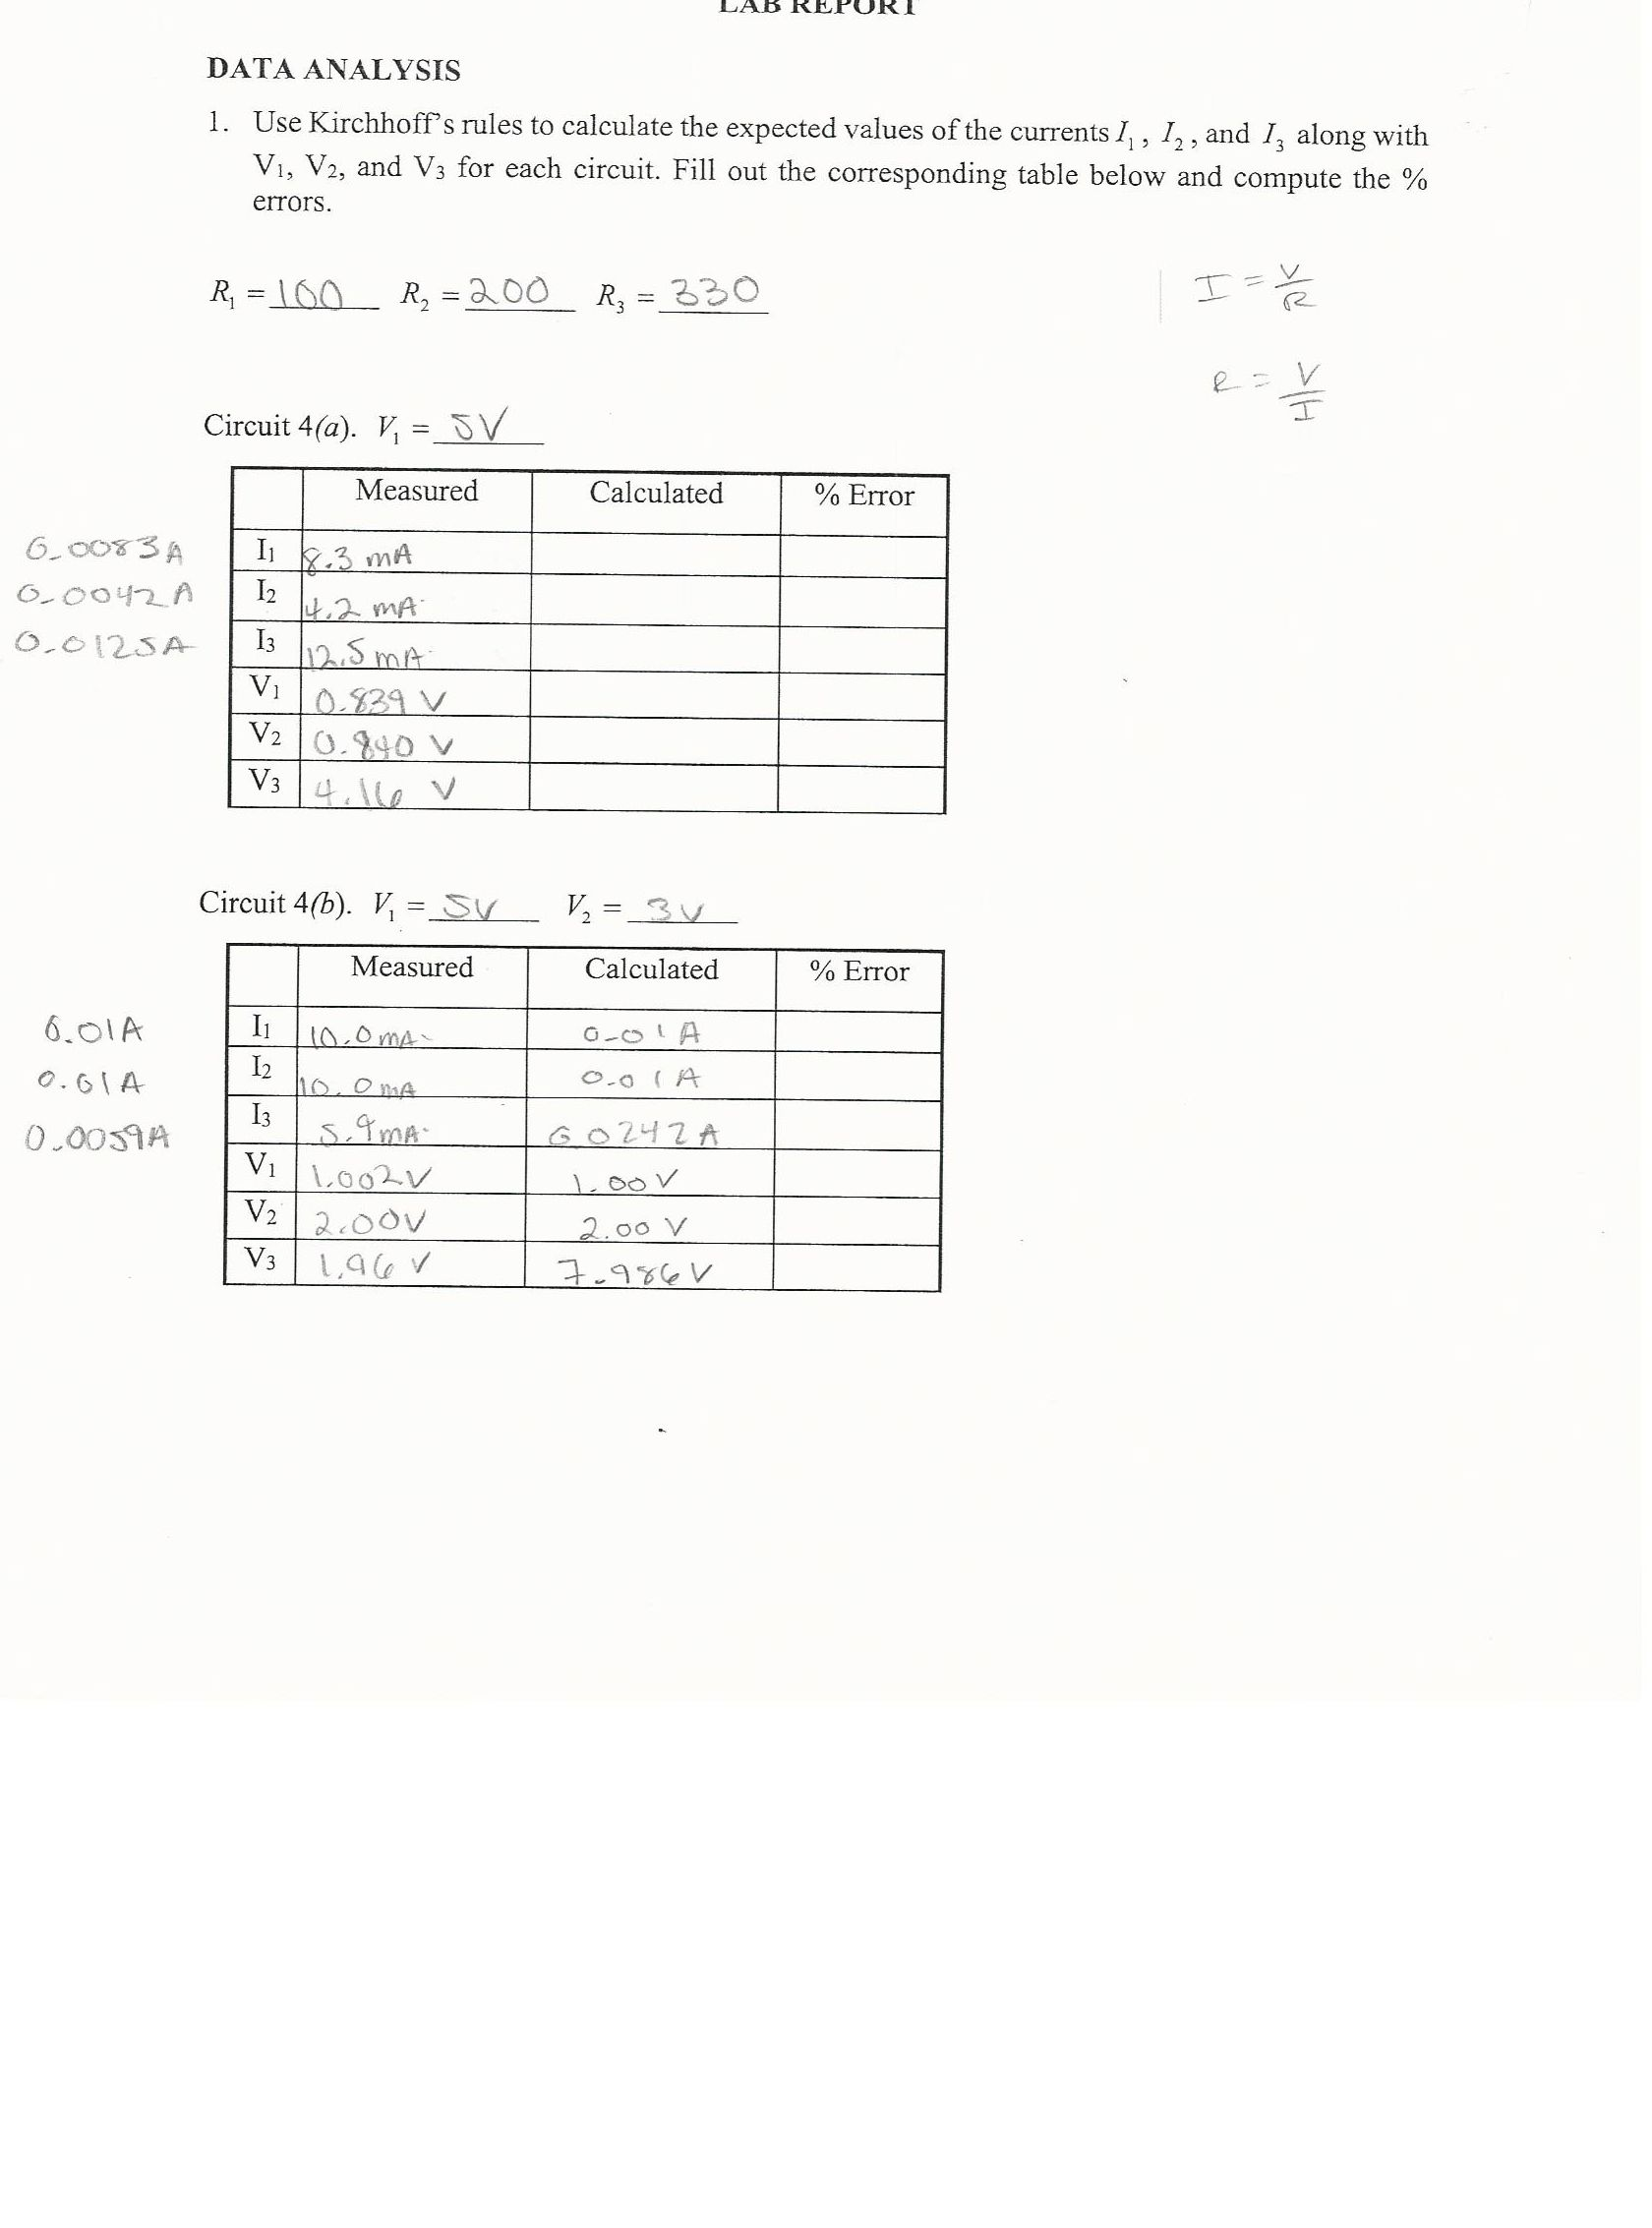 LAB REPORT
DATA ANALYSIS
1. Use Kirchhoff's rules to calculate the expected values of the currents I₁ , I₂ , and I₃ along with
V₁, V₂, and V₃ for each circuit. Fill out the corresponding table below and compute the %
errors.
R₁ = 100 R₂ = 200 R₃ = 330
I = V/R
R = V/I
Circuit 4(a). V₁ = 5V
Measured Calculated % Error
0.0083A I₁ 8.3 mA
0.0042A I₂ 4.2 mA
0.0125A I₃ 12.5 mA
V₁ 0.839 V
V₂ 0.840 V
V₃ 4.16 V
Circuit 4(b). V₁ = 5V V₂ = 3V
Measured Calculated % Error
0.01A I₁ 10.0 mA 0.01A
0.01A I₂ 10.0 mA 0.01A
0.0059A I₃ 5.9 mA 0.0242A
V₁ 1.002V 1.00V
V₂ 2.00V 2.00 V
V₃ 1.96 V 7.986V